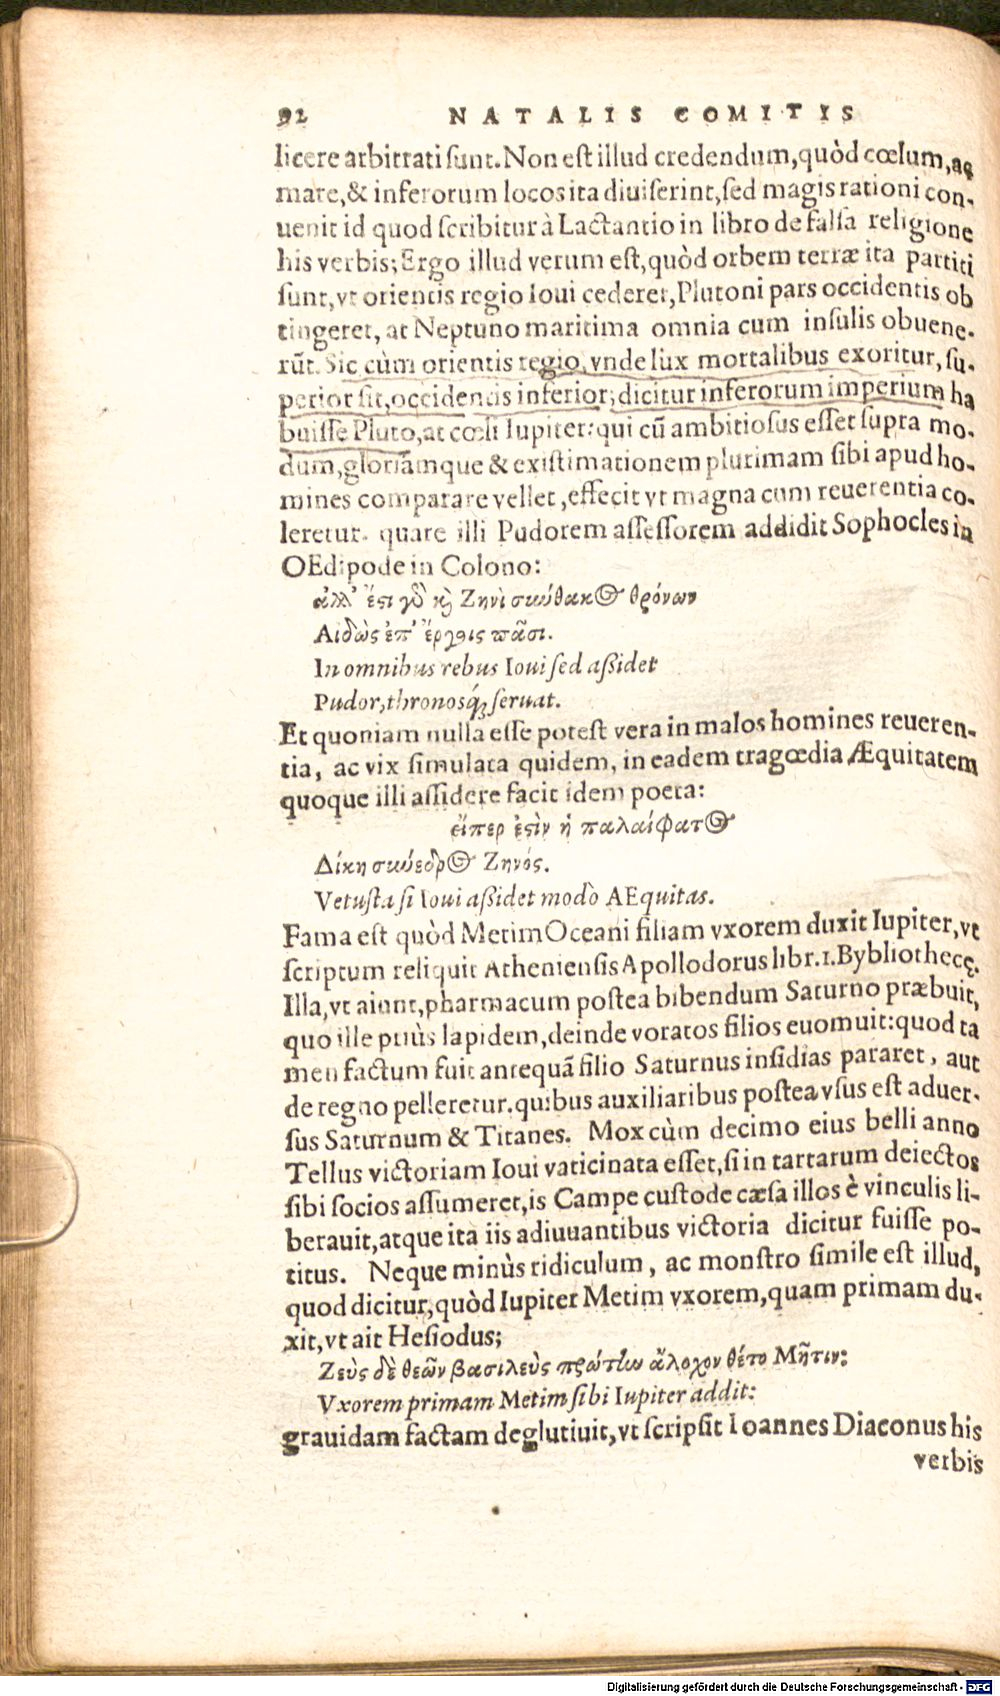 92 NATALIS COMITIS
licere arbitrati sunt. Non est illud credendum, quòd cœlum, ac
mare, & inferorum locos ita diuiserint, sed magis rationi con-
uenit id quod scribitur à Lactantio in libro de falsa religione
his verbis; Ergo illud verum est, quòd orbem terræ ita partiti
sunt, vt orientis regio Ioui cederet, Plutoni pars occidentis ob
tingeret, at Neptuno maritima omnia cum insulis obuene-
rũt. Sic cùm orientis regio, vnde lux mortalibus exoritur, su-
perior sit, occidentis inferior; dicitur inferorum imperium ha
buisse Pluto, at cœli Iupiter: qui cũ ambitiosus esset supra mo-
dum, gloriamque & existimationem plurimam sibi apud ho-
mines comparare vellet, effecit vt magna cum reuerentia co-
leretur. quare illi Pudorem assessorem addidit Sophocles in
OEdipode in Colono:
ἀλλ' ἔστι γὸ καὶ Ζηνὶ σύνθακος θρόνων
Αἰδὼς ἐπ' ἔργοις πᾶσι.
In omnibus rebus Ioui sed assidet
Pudor, thronosq́; seruat.
Et quoniam nulla esse potest vera in malos homines reueren-
tia, ac vix simulata quidem, in eadem tragœdia Æquitatem
quoque illi assidere facit idem poeta:
εἴπερ ἐστὶν ἡ παλαίφατος
Δίκη σύνεδρος Ζηνός.
Vetusta si Ioui assidet modò AEquitas.
Fama est quòd Metim Oceani filiam vxorem duxit Iupiter, vt
scriptum reliquit Atheniensis Apollodorus libr. 1. Bybliothecę.
Illa, vt aiunt, pharmacum postea bibendum Saturno præbuit,
quo ille priùs lapidem, deinde voratos filios euomuit: quod ta
men factum fuit antequã filio Saturnus insidias pararet, aut
de regno pelleretur. quibus auxiliaribus postea vsus est aduer-
sus Saturnum & Titanes. Mox cùm decimo eius belli anno
Tellus victoriam Ioui vaticinata esset, si in tartarum deiectos
sibi socios assumeret, is Campe custode cæsa illos è vinculis li-
berauit, atque ita iis adiuuantibus victoria dicitur fuisse po-
titus. Neque minùs ridiculum, ac monstro simile est illud,
quod dicitur, quòd Iupiter Metim vxorem, quam primam du-
xit, vt ait Hesiodus;
Ζεὺς δὲ θεῶν βασιλεὺς πρώτην ἄλοχον θέτο Μῆτιν:
Vxorem primam Metim sibi Iupiter addit:
grauidam factam deglutiuit, vt scripsit Ioannes Diaconus his
verbis
Digitalisierung gefördert durch die Deutsche Forschungsgemeinschaft - DFG